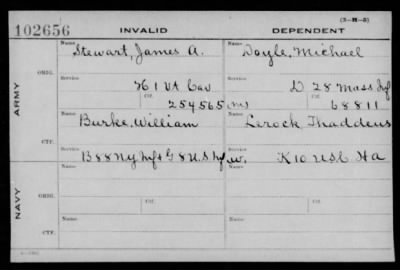 (3-H-5)
102656 INVALID DEPENDENT
Name Name
Stewart, James A. Doyle, Michael
ORIG. Service Service
H 1 Vt Cav D 28 Mass Inf
Ctf. Ctf.
254565 68811
ARMY
Name Name
Burke, William Lerock Thaddeus
CTF. Service Service
B 88 Ny Inf & G 8 U.S Inf W. K 10 USC HA
NAVY
Name Name
ORIG. Service Service
Ctf. Ctf.
Name Name
CTF. Service Service